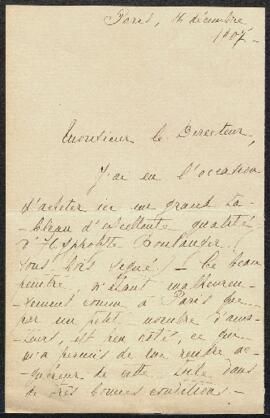 Paris, 16 décembre
1907.
Monsieur le Directeur,
J'ai eu l'occasion
d'acheter ici un grand ta-
bleau d'excellente qualité
d'Hippolyte Boulenger (
sous bois signé) - Ce beau
peintre, n'étant malheureu-
sement connu à Paris que
par un petit nombre d'ama-
teurs, est peu coté, ce qui
m'a permis de me rendre ac-
quéreur de cette toile dans
de très bonnes conditions -